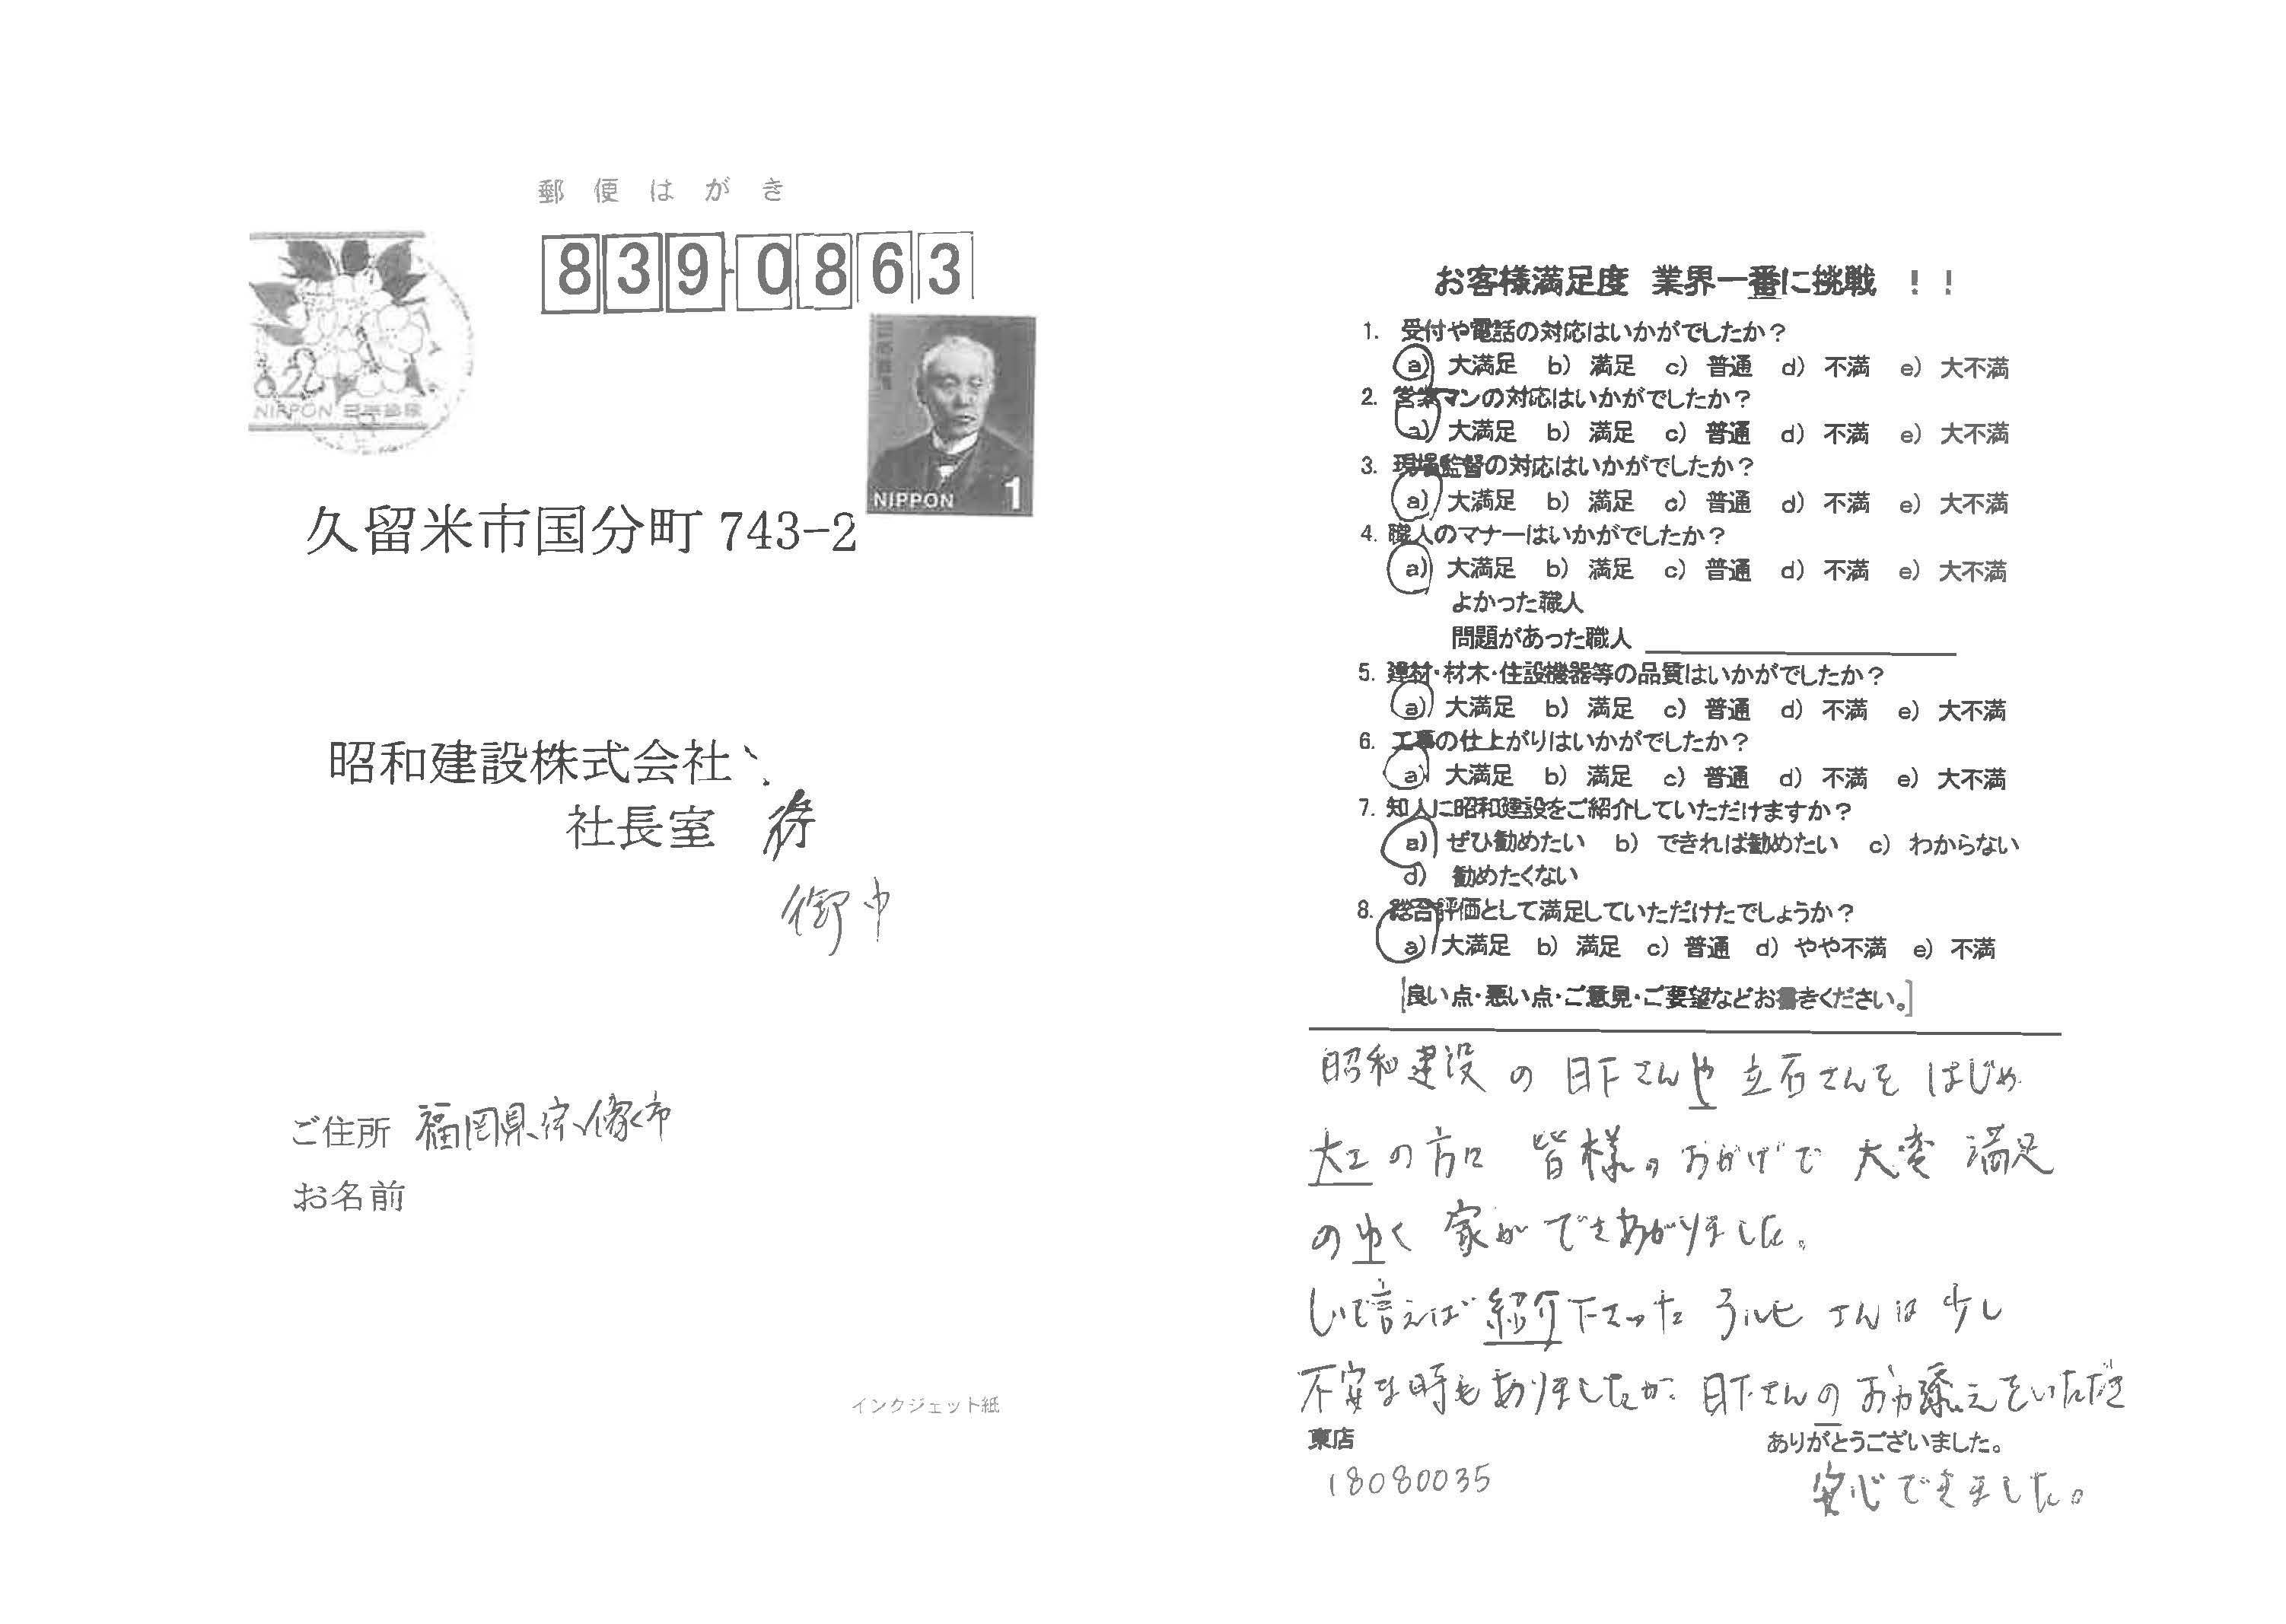 郵便はがき
839-0863
NIPPON 日本郵便
NIPPON 1
久留米市国分町 743-2
昭和建設株式会社
社長室 行
御中
ご住所 福岡県宗像市
お名前
インクジェット紙
お客様満足度 業界一番に挑戦 !!
1. 受付や電話の対応はいかがでしたか？
a) 大満足 b) 満足 c) 普通 d) 不満 e) 大不満
2. 営業マンの対応はいかがでしたか？
a) 大満足 b) 満足 c) 普通 d) 不満 e) 大不満
3. 現場監督の対応はいかがでしたか？
a) 大満足 b) 満足 c) 普通 d) 不満 e) 大不満
4. 職人のマナーはいかがでしたか？
a) 大満足 b) 満足 c) 普通 d) 不満 e) 大不満
よかった職人
問題があった職人
5. 建材・材木・住設機器等の品質はいかがでしたか？
a) 大満足 b) 満足 c) 普通 d) 不満 e) 大不満
6. 工事の仕上がりはいかがでしたか？
a) 大満足 b) 満足 c) 普通 d) 不満 e) 大不満
7. 知人に昭和建設をご紹介していただけますか？
a) ぜひ勧めたい b) できれば勧めたい c) わからない
d) 勧めたくない
8. 総合評価として満足していただけたでしょうか？
a) 大満足 b) 満足 c) 普通 d) やや不満 e) 不満
[良い点・悪い点・ご意見・ご要望などお書きください。]
昭和建設 の 日下さんや 立石さんを はじめ
大工の方に 皆様のおかげで 大変 満足
のゆく 家が できあがりました。
しいて言えば 紹介下さった さんは 少し
不安な時もありましたが、日下さんのお力添えをいただき
東店
ありがとうございました。
18080035
安心できました。